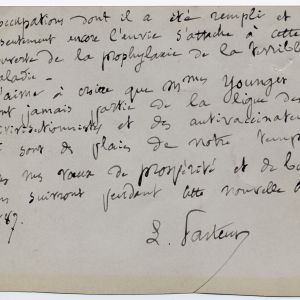 occupations dont il a été rempli et
sentement encore l'envie s'attache à cette
verte de la prophylaxie de la terrible
aladie –
'aime à croire que Mmes Younger
ont jamais partie de la clique des
ivisectionnistes et des antivaccinateu
i sont des plaies de notre temps
es mes vœux de prospérité et de
suivront pendant cette nouvelle a
L. Pasteur